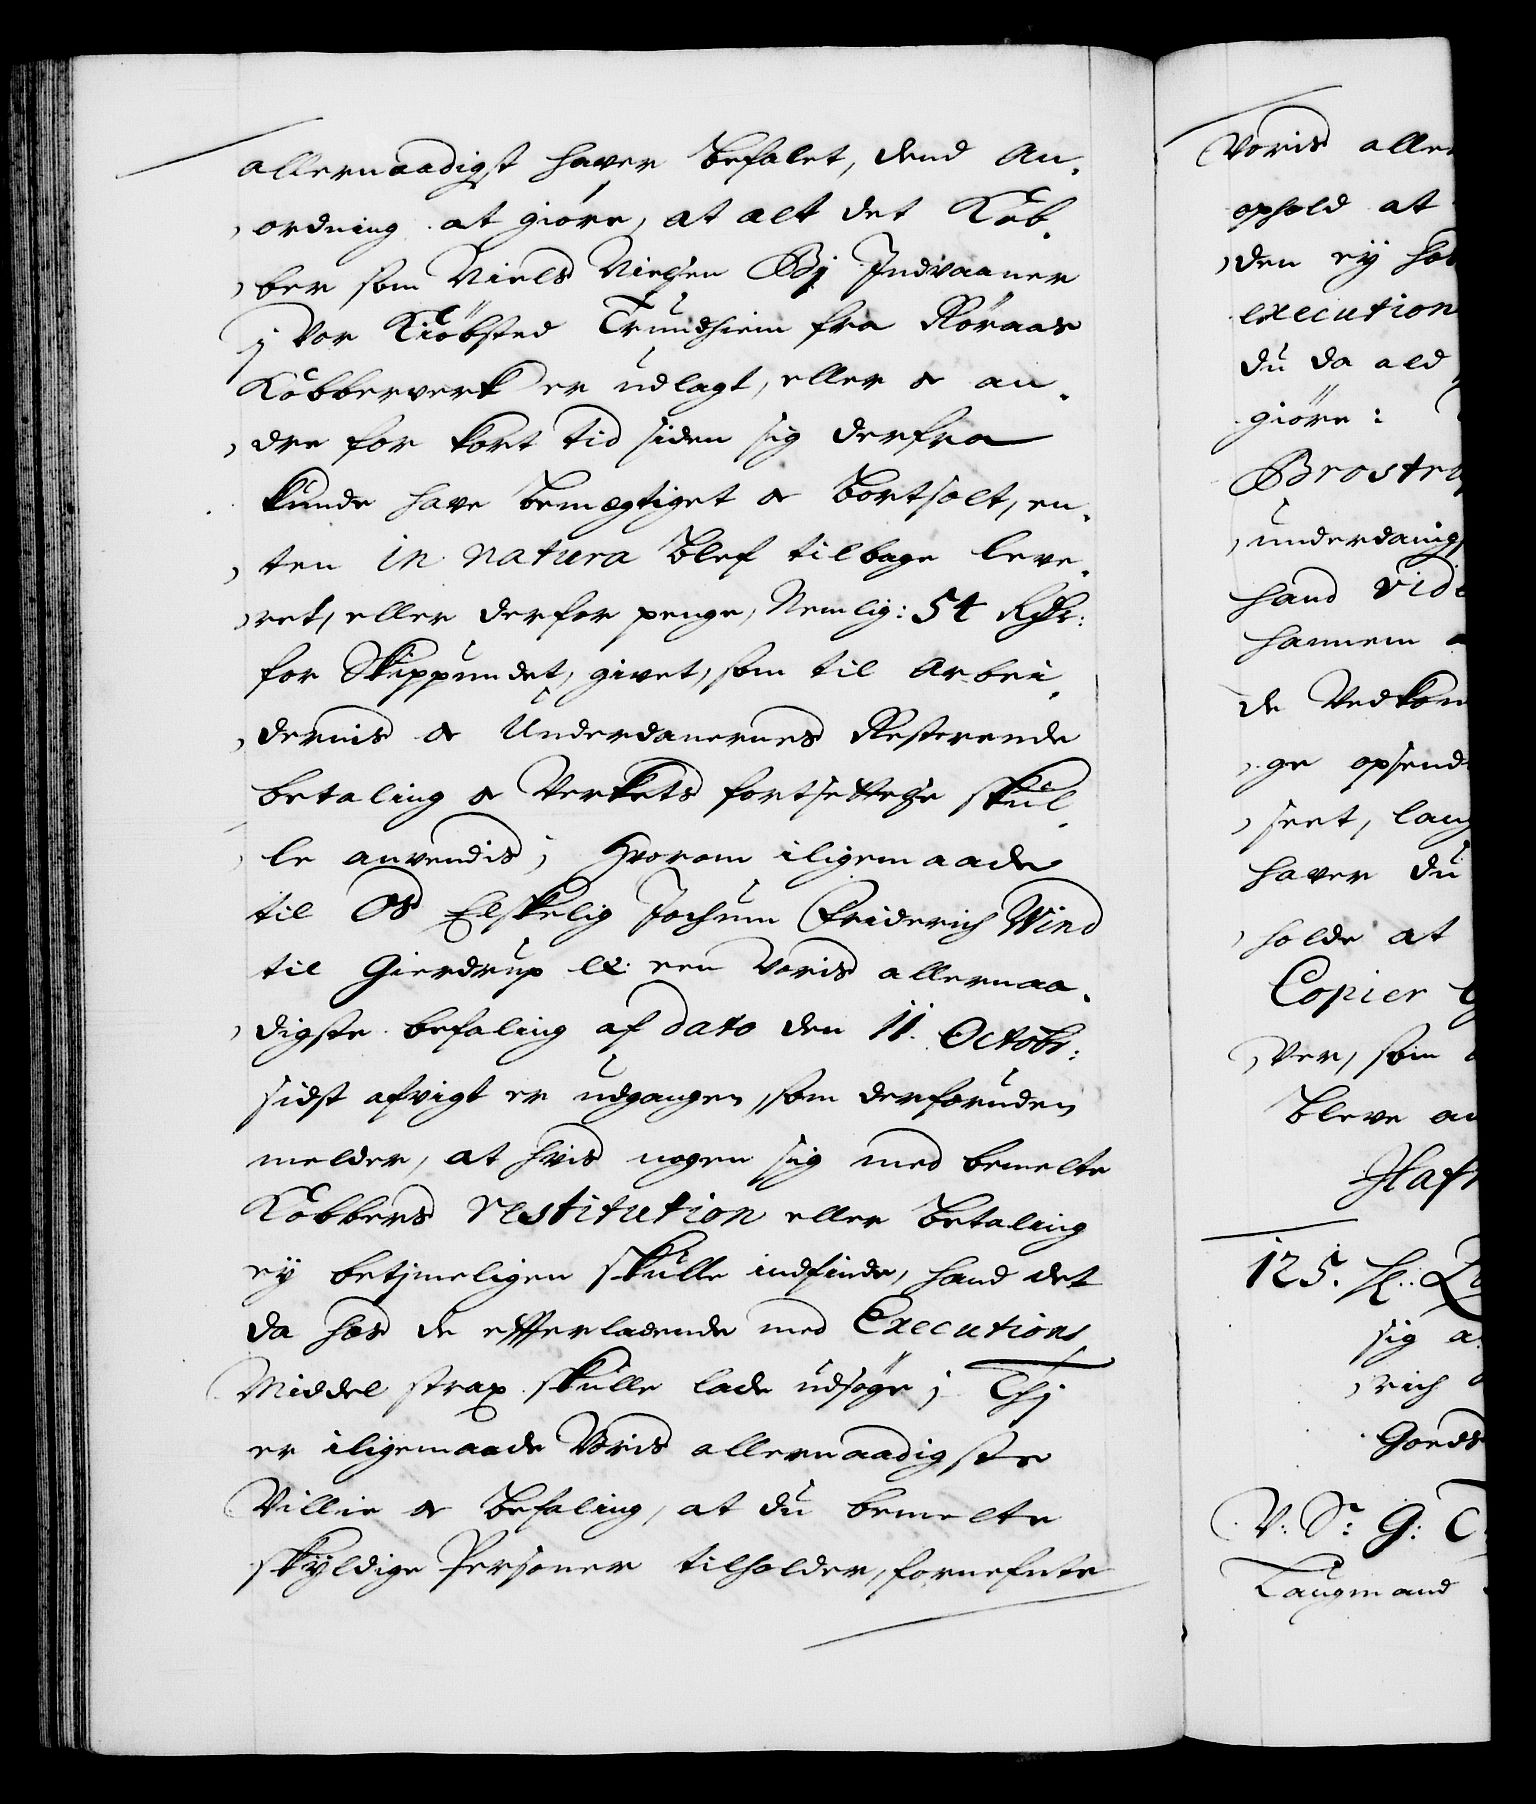 allernaadigst haver befalet, dend An-
ordning at giöre, at alt det Kob-
ber som Niels Nielsen Bÿ Indvaaner
j Vor Kiöbsted Trundhiem fra Röraas
Kobberverk er udlagt, eller & an-
dre for kort tid siden sig derfra
kunde have bemegtiget & bortsolt, en-
ten in natura blef tilbage leve-
ret, eller derfor penge, Nemlig: 54 Rdr:
for Skippundet, givet, som til Arbei-
dernis & Underdanernes Resterende
betaling & Verkets fortsettelse skul-
le anvendis; Hvorom iligemaade
til Os Elskelig Jochum Friderich Wind
til Gierdrup &: een Voris allernaa-
digste befaling af dato den 11. Octobr:
sidst afvigt er udgangen, som derforuden
melder, at hvis nogen sig med bemelte
Kobbers restitution eller betaling
eÿ betimeligen skulle indfinde, hand det
da hos de efterladende med Executions
Middel strax skulle lade udsøge; Thj
er iligemaade Voris allernaadigste
Villie & befaling, at du bemelte
skÿldige Personer tilholder, fornefnte
Voris aller
ophold at
den eÿ hol
execution
du da ald
giöre:
Brostru
underdanigs
hand vide
hannem
de Vedkom
ge opsend
seet, lang
haver du
holde at
Copier
ver, som
bleve an
Hafn
125. H:
sig a
rich
Gods
V: Sr: G: T
Laugmand